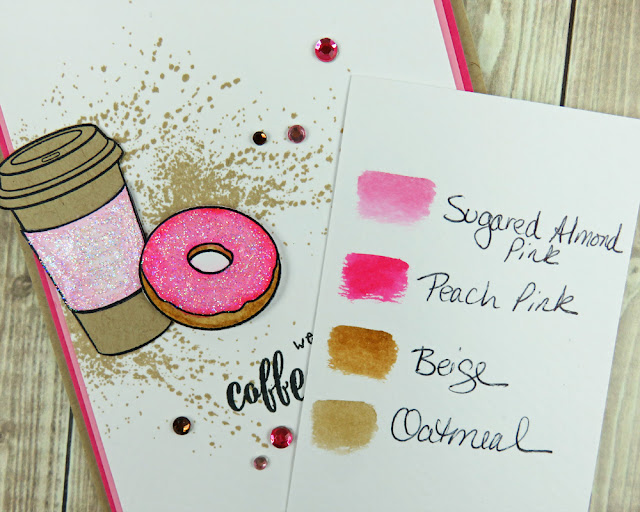 we
coffe
Sugared Almond
Pink
Peach Pink
Beige
Oatmeal